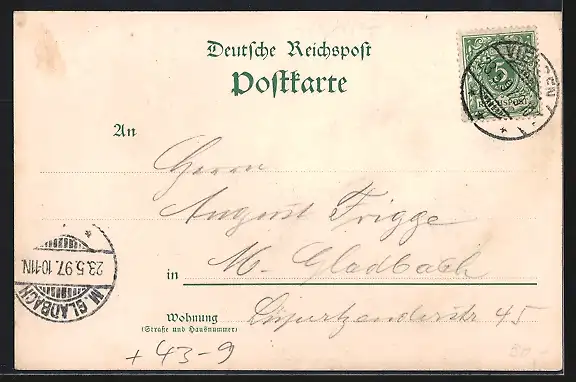 Deutsche Reichspost
Postkarte
VIERSEN
5
REICHSPOST
An
Herrn
August Frigge
in M. Gladbach
23.5.97. 10-11N.
M. GLADBACH
Wohnung
(Straße und Hausnummer)
45
+ 43-9